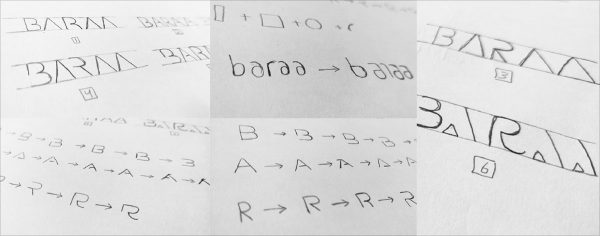 BARAA BARAA
1
BARAA BAR
4
+ + + r
baraa → baraa
BARAA
3
BARAA
6
B → B → B → B → B
A → A → A → A → A
R → R → R → R
B → B → B → B
A → A → A → A → A
R → R → R → R